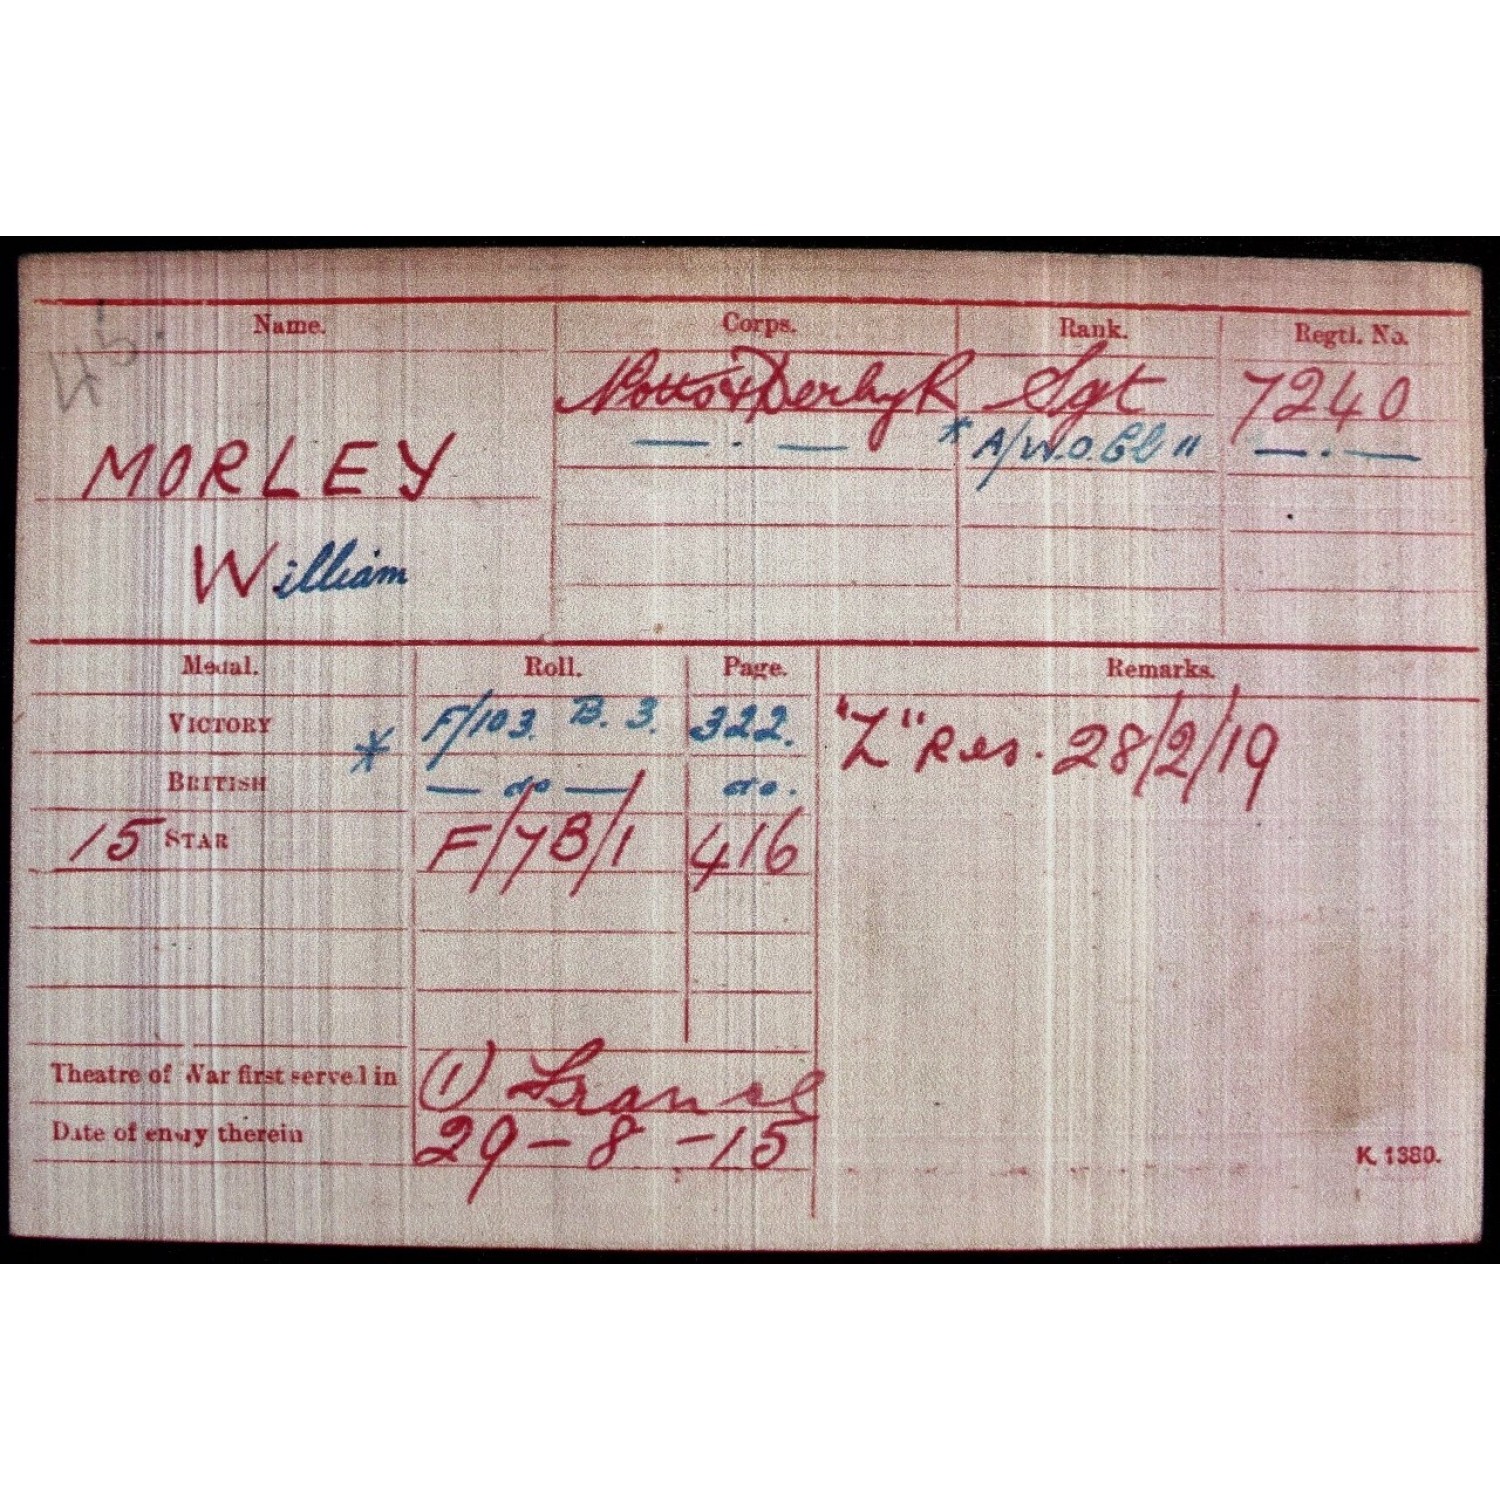 45.
Name. Corps. Rank. Regtl. No.
Notts & Derby R Sgt 7240
— . — * A/W.O.Cl II — . —
MORLEY
William
Medal. Roll. Page. Remarks.
VICTORY * F/103. B. 3. 322. "Z" Res. 28/2/19
BRITISH — do — do.
15 STAR F/7B/1 416
Theatre of War first served in (1) France
Date of entry therein 29-8-15
K. 1380.